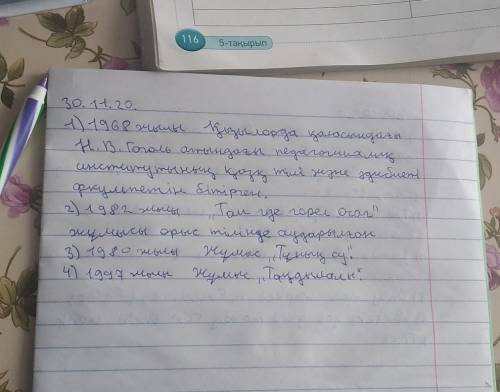 116
5-тақырып
30.11.20.
1) 1968 жылы Қызылорда қаласындағы
Н.В. Гоголь атындағы педагогикалық
институтының қазқ тілі және әдебиеті
факультетін бітірген.
2) 1982 жылы „Там где горел очаг"
жұмысы орыс тілінде аударылған
3) 1980 жылы Жұмыс „Тұнық су".
4) 1997 жылы Жұмыс „Таңдамалы".